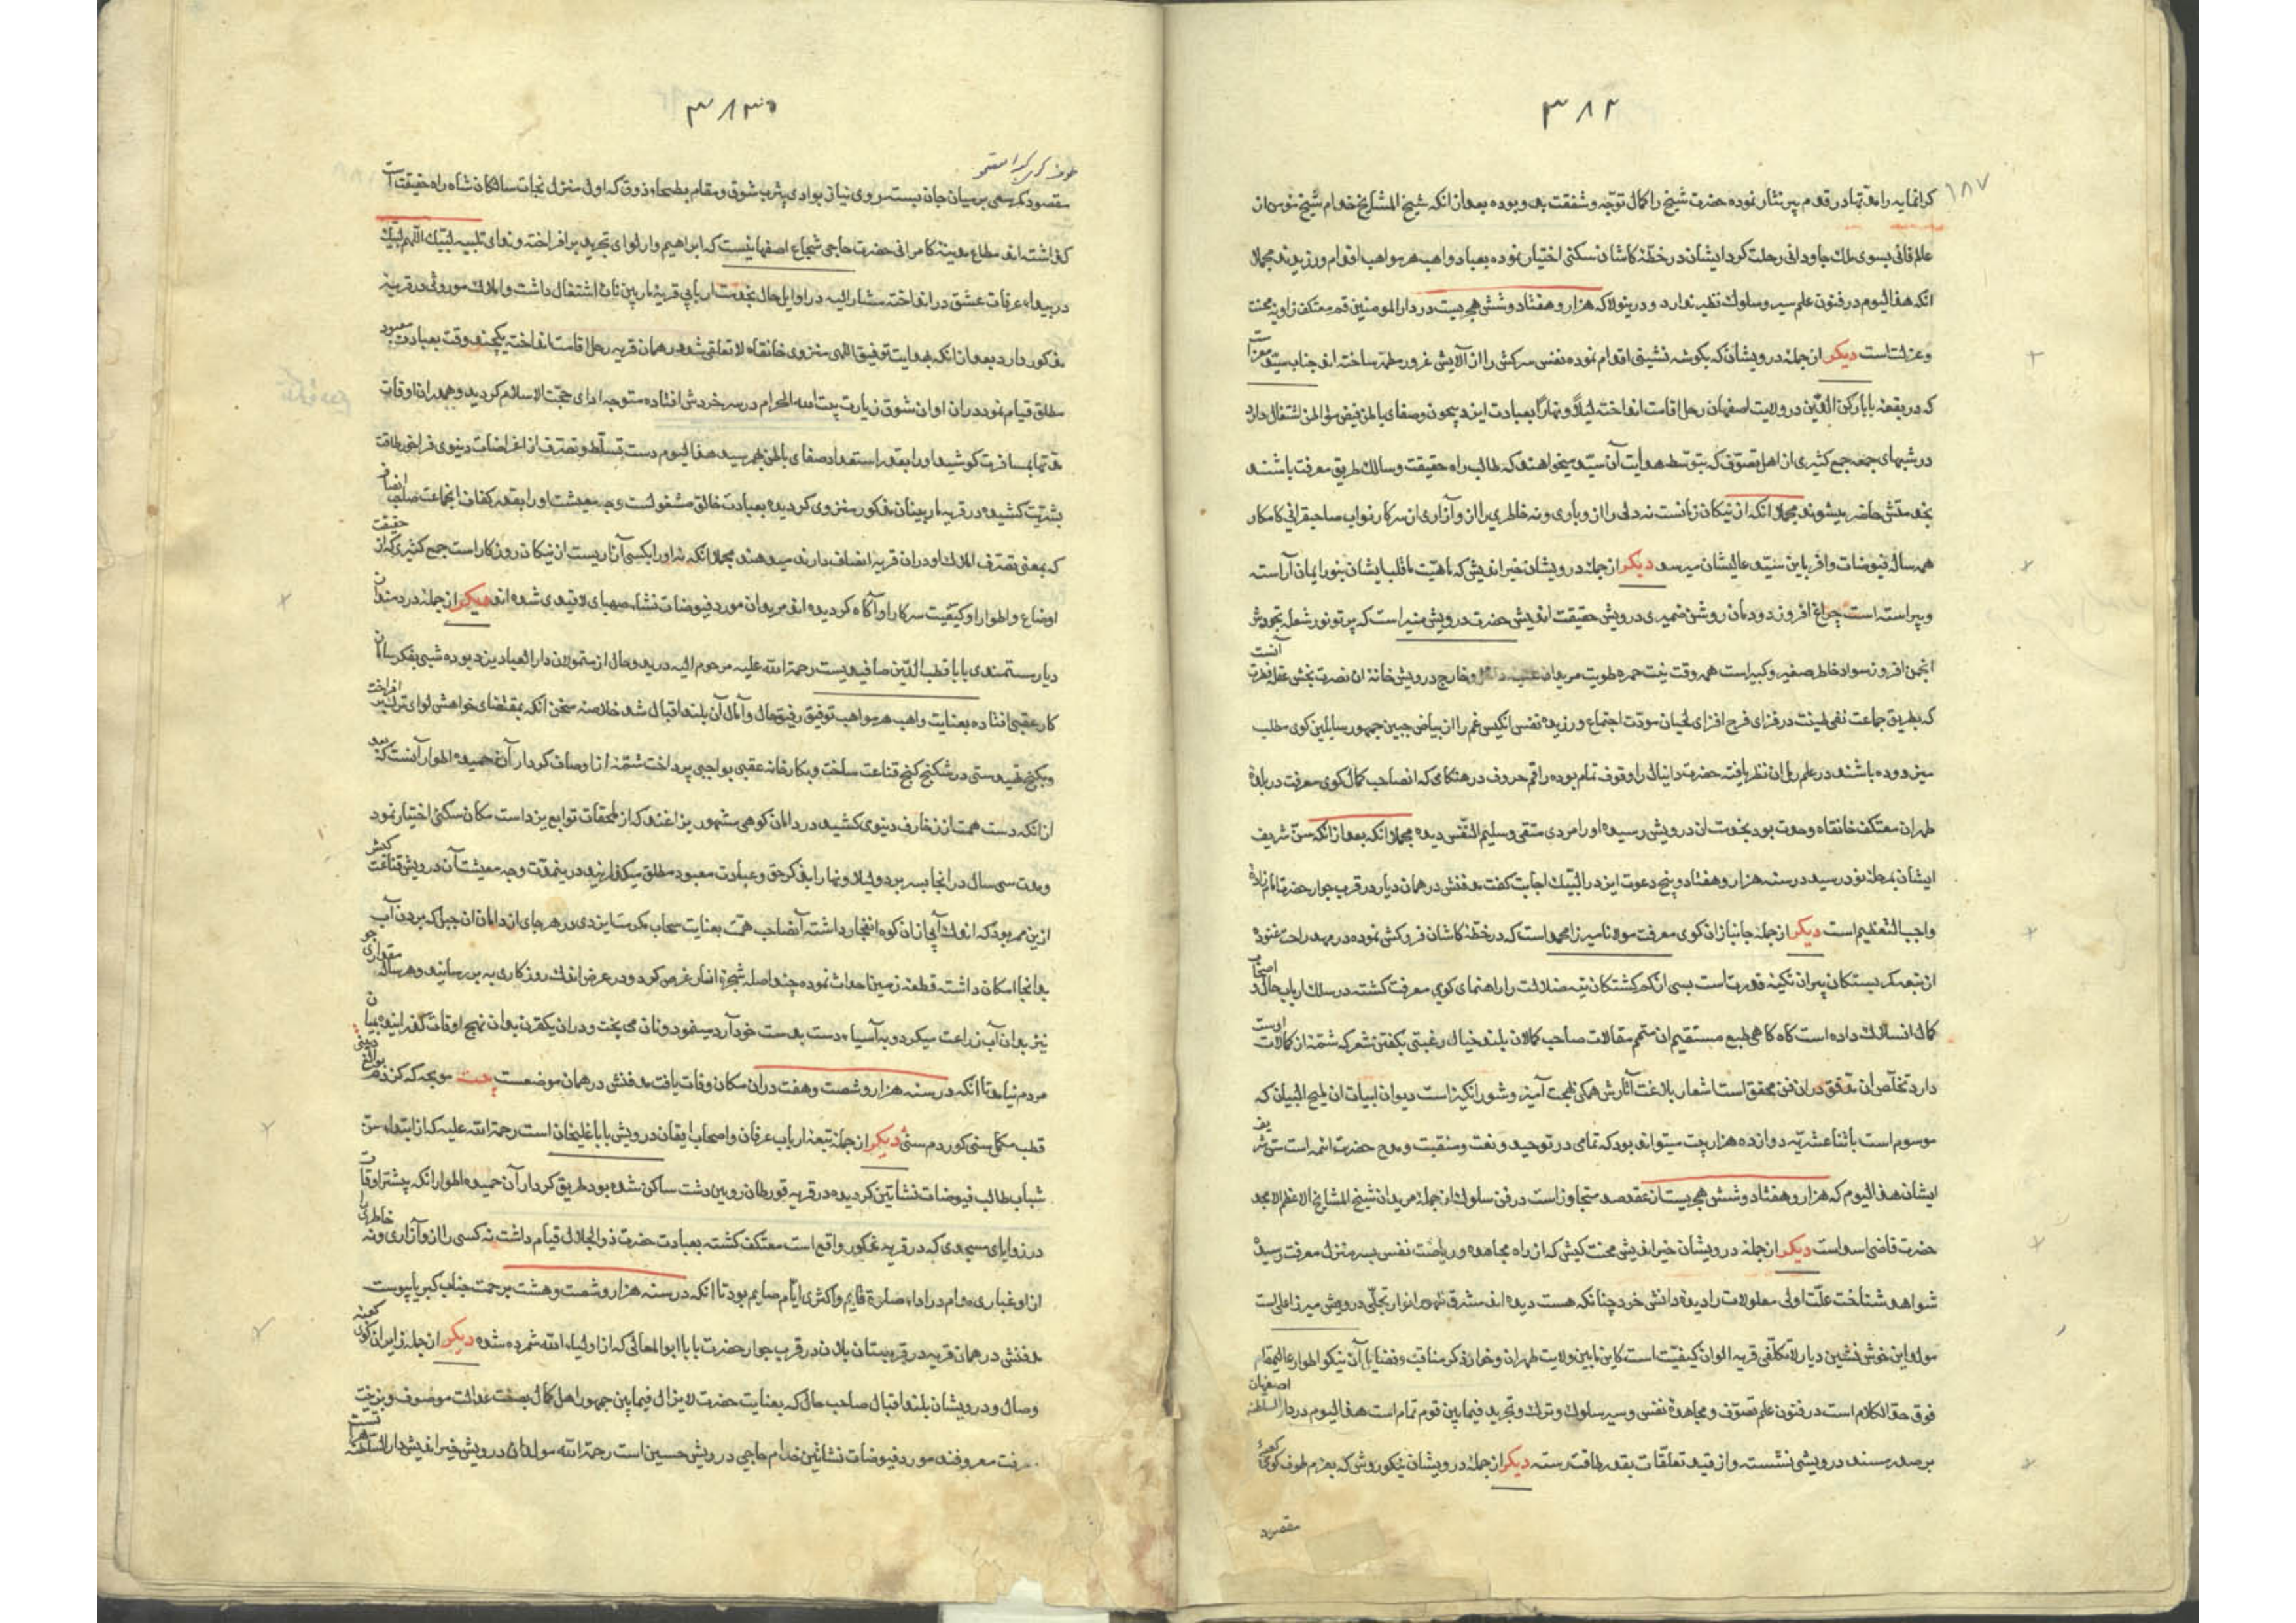 ۳۸۲
۱۸۷
کرانمایه را مدتها در قدم پیر نثار نموده حضرت شیخ را کمال توجه و شفقت بدو بوده بعد از انکه شیخ المشایخ خدام شیخ مومن از
عالم فانی بسوی ملک جاودانی رحلت کرد ایشان در خطهٔ کاشان سکنی اختیار نموده بعباد واهب هر مواهب اقدام ورزیدند مجملا
انکه هذا الیوم در فنون علم سیر و سلوک نظیر ندارد و درینولا که هزار و هفتاد و شش هجریست در دار المومنین قم معتکف زاویهٔ محنت
و عزلت است دیکر از جملهٔ درویشان که بکوشه نشینی اقدام نموده نفس سرکش را از آلایش غرور مطهر ساخته اند جناب سید
که در بقعهٔ بابا رکن الدین در ولایت اصفهان رحل اقامت انداخته لیلاً و نهاراً بعبادت ایزد بیچون و صفای باطن فیض مواطن اشتغال دارد
در شبهای جمعه جمع کثیری از اهل تصوف که بتوسط هدایت آن سید میخواهند که طالب راه حقیقت و سالک طریق معرفت باشند
بخدمتش حاضر میشوند مجملا انکه از نیکان زمانست نه دلی را از و باری و نه خاطری را از و آزاری از سرکار نواب صاحبقرانی کامکار
همه ساله فیوضات وافر باین سید عالیشان میرسد دیکر از جملهٔ درویشان خیر اندیش که ماهیت ما قلب ایشان بنور ایمان آراسته
و پیراسته است چراغ افروز دودمان روشن ضمیری درویش حقیقت اندیش حضرت درویش منیر است که پرتو نور شعلهٔ تجردش
انجمن افروز سواد خاطر صغیر و کبیر است همه وقت نیت حمیده طویت مریدان و خارج درویش خانهٔ ان نصرت بخش عقل فطرت آنست
که بطریق جماعت نفی طینت در فزای فرح افزای لحیان مودت اجتماع ورزیده نفس انکیسی غم را از بیاض جبین جمهور سایلین کوی مطلب
می زدوده باشند در علم رمل ان نظر یافته حضرت دانیال را وقوف تمام بوده راقم حروف در هنکامی که انصاحب کمال کوی معرفت در بلدهٔ
طهران معتکف خانقاه وحدت بود بخدمت ان درویش رسیده او را مردی متقی و سلیم النفس دیده مجملا انکه بعد از انکه سن شریف
ایشان بمرحلهٔ نود رسید در سنه هزار و هفتاد و پنج دعوت ایزد را لبیک اجابت کفت مدفنش در همان دیار در قرب جوار حضرت امام زادهٔ
واجب التعظیم است دیکر از جملهٔ جانبازان کوی معرفت مولانا میرزا محمد است که در خطهٔ کاشان فروکش نموده در مهد راحت غنوده
از تبعهٔ کمر بستکان پیران تکیهٔ قدرت است بسی از کم کشتکان تیه ضلالت را راهنمای کوی معرفت کشته در سلک ارباب حال و اصحاب
کمال انسلاک داده است کاه کاهی طبع مستقیم ان متمم مقالات صاحب کمالان بلند خیال رغبتی بکفتن شعر که شمهٔ از کمالات اوست
دارد تخلص ان مدقق در ان فن محقق است اشعار بلاغت آثارش همکی بهجت آمیز و شورانکیز است دیوان ابیات ان ملیح البیان که
موسوم است باثنا عشریه دوازده هزار بیت میتواند بود که تمامی در توحید و نعت و منقبت و مدح حضرت ائمه است سن شریف
ایشان هذا الیوم که هزار و هفتاد و شش هجریست از عقد صد متجاوز است در فن سلوک از جملهٔ مریدان شیخ المشایخ الاعظم الامجد
حضرت قاضی اسد است دیکر از جملهٔ درویشان خیر اندیش محنت کیش که از راه مجاهده و ریاضت نفس بسر منزل معرفت رسیده
شواهد شناخت علت اولی معلولات را دیدهٔ دانش خرد چنانکه هست دیده اند مشرق ظهور انوار تجلی درویش میرزا علی است
مولد این خوش نشین دیار لا تکلفی قریه الوان کیفیت است کاین مابین ولایت طهران و خوار ذکر مناقب و فضایل آن نیکو اطوار عالیمقام
فوق حد الکلام است در فنون علم تصوف و مجاهدهٔ نفس و سیر سلوک و ترک و تجرید فیما بین قوم تمام است هذا الیوم در دار السلطنه اصفهان
بر صدر مسند درویشی نشسته و از قید تعلقات بقدر طاقت رسته دیکر از جملهٔ درویشان نیکو روش که بعزم طوف کوی کعبهٔ
مقصود
۳۸۳
مقصود کمر سعی بر میان جان بسته روی نیاز بوادی یثرب شوق و مقام بطحاء ذوق که اول منزل نجات سالکان شاه راه حقیقت است
کذاشته اند مطاع مدینهٔ کامرانی حضرت حاجی شجاع اصفهانیست که ابراهیم وار لوای تجرید برافراخته و ندای تلبیه لبیک اللهم لبیک
در بیداء عرفات عشق در انداخته مشار الیه در اوایل حال بخدمت اربابی قریهٔ ماربین نان اشتغال داشت و املاک موروثی در قریهٔ
مذکور دارد بعد از انکه بهدایت توفیق الهی منزوی خانقاه لا تعلقی شد در همان قریه رحل اقامت انداخته یکچند وقت بعبادت معبود
مطلق قیام نمود در ان اوان شوق زیارت بیت الله الحرام در سر خردش افتاده متوجه ادای حجت الاسلام کردید و همدران اوقات
مدتها بمسافرت کوشید او را بقدر استعداد صفای باطن بهم رسید هذا الیوم دست تسلط و تصرف از اغراضات دنیوی فراخور طاقت
بشریت کشیده در قریه ماربینان مذکور منزوی کردیده بعبادت خالق مشغولست وجه معیشت او را بقدر کفاف انجماعت صاحب انصاف
که بمعنی تصرف املاک او دران قریه انصاف دارند میدهند مجملا انکه نه او را بکسی آزاریست از نیکان روزکار است جمع کثیری که از حقیقت
اوضاع و اطوار او کیفیت سرکار او آکاه کردیده اند مریدان مورد فیوضات نشاء صهبای لا قیدی شده اند دیکر از جمله دردمندان
دیار مستمندی بابا قطب الدین صافیدیست رحمة الله علیه مرحوم الیه در بدو حال از متمولان دار العباد یزد بوده شبی بفکر سامان
کار عقبی افتاده بعنایت واهب هر مواهب توفیق رفیق حال و آمال آن بلند اقبال شد خلاصهٔ سخن انکه بمقتضای خواهش لوای ترک برافراخت
و بکنج تهیدستی در شکنج کنج قناعت ساخت و بکار خانه عقبی بواجبی پرداخت شمهٔ از اوصاف کردار آن حمیده اطوار آنست که بعد
از انکه دست همت از زخارف دنیوی کشید در دامان کوهی مشهور که از ملحقات توابع یزد است مکان سکنی اختیار نمود
و مدت سی سال در انجا بسر برد و لیلا و نهارا بذکر حق و عبادت معبود مطلق میکذرانید در ینمدت وجه معیشت آن درویش قناعت کیش
ازین ممر بود که اندک آبی از ان کوه انفجار داشته آنصاحب همت بعنایت سحاب مکرمت ایزدی در هر جای از دامان ان جبل که بردن آب
بدانجا امکان داشته قطعهٔ زمین احداث نموده چند اصله شجرهٔ انار غرس کرد و در عرض اندک روزکاری به بر رسانید و هر ساله مقداری جو
نیز بدان آب زراعت میکرد و به آسیاء دست بدست خود آرد مینمود و نان می پخت و در ان یکقرن بدان نهج اوقات کذرانید
مردم نیامد تا انکه در سنه هزار و شصت و هفت دران مکان وفات یافت مدفنش در همان موضعست
دیکر از جملهٔ تبعهٔ ارباب عرفان و اصحاب ایقان درویش بابا علیخان است رحمة الله علیه که از ابتداء سن
شباب طالب فیوضات نشاتین کردیده در قریه قورطان رویین دشت ساکن شده بود طریق کردار آن حمیده اطوار انکه پیشتر اوقات
در زوایای مسجدی که در قریه مذکور واقع است معتکف کشته بعبادت حضرت ذو الجلال قیام داشت نه کسی را از و آزاری و نه خاطری را
از او غباری مدام در اداء صلوة قایم و اکثری ایام صایم بود تا انکه در سنه هزار و شصت و هشت برحمت جناب کبریا پیوست
مدفنش در همان قریه در قبرستان بلان در قرب جوار حضرت بابا ابو المعالی که از اولیاء الله شمرده شده دیکر از جمله زایران کوی کعبهٔ
وصال و درویشان بلند اقبال صاحب حال که بعنایت حضرت لایزال فیما بین جمهور اهل کمال بصفت عدالت موصوف و بزینت
معرفت معروفند مورد فیوضات نشاتین خدام حاجی درویش حسین است رحمة الله مولد ان درویش خیر اندیش دار السلطنه